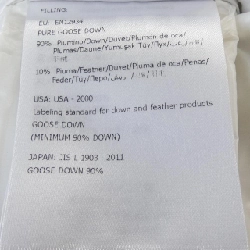 FILLING
EU: EN12934
PURE GOOSE DOWN
90% Piumino/Down/Duvet/Plumón de oca/
Plumas/Daune/Yumuşak Tüy/Пух/
10% Piuma/Feather/Duvet/Pluma de oca/Penas/
Feder/Tüy/Перо/
USA: USA - 2000
Labeling standard for down and feather products
GOOSE DOWN
(MINIMUM 90% DOWN)
JAPAN: JIS L 1903 - 2011
GOOSE DOWN 90%